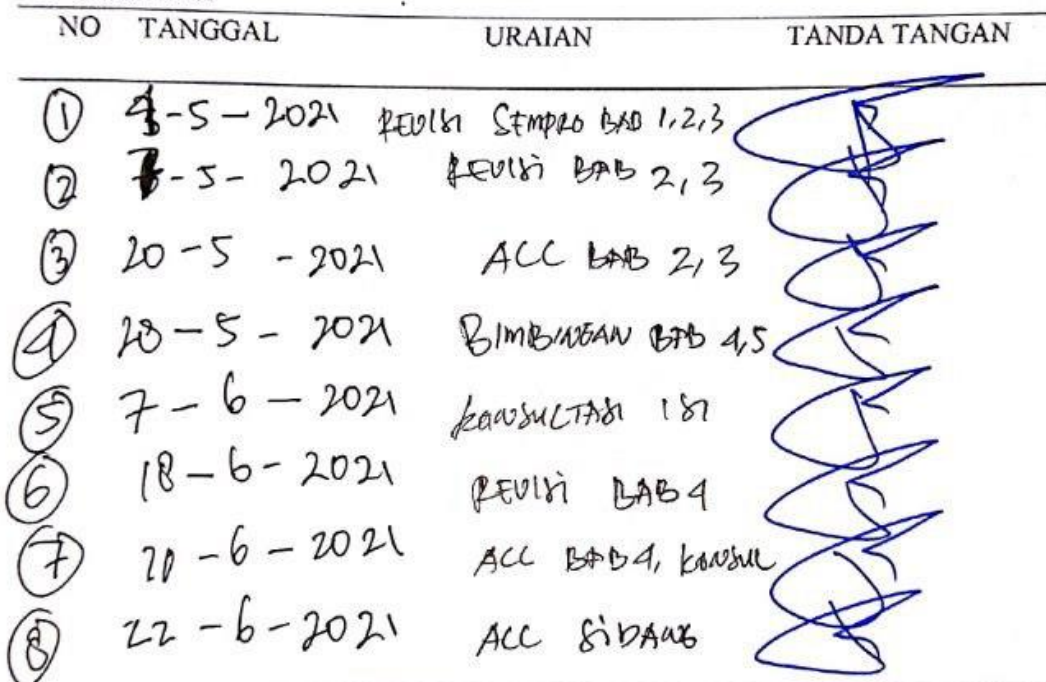 NO TANGGAL URAIAN TANDA TANGAN
1 4-5-2021 REVISI SEMPRO BAB 1,2,3
2 7-5-2021 REVISI BAB 2,3
3 20-5-2021 ACC BAB 2,3
4 28-5-2021 BIMBINGAN BAB 4,5
5 7-6-2021 KONSULTASI ISI
6 18-6-2021 REVISI BAB 4
7 20-6-2021 ACC BAB 4, KONSUL
8 22-6-2021 ACC SIDANG